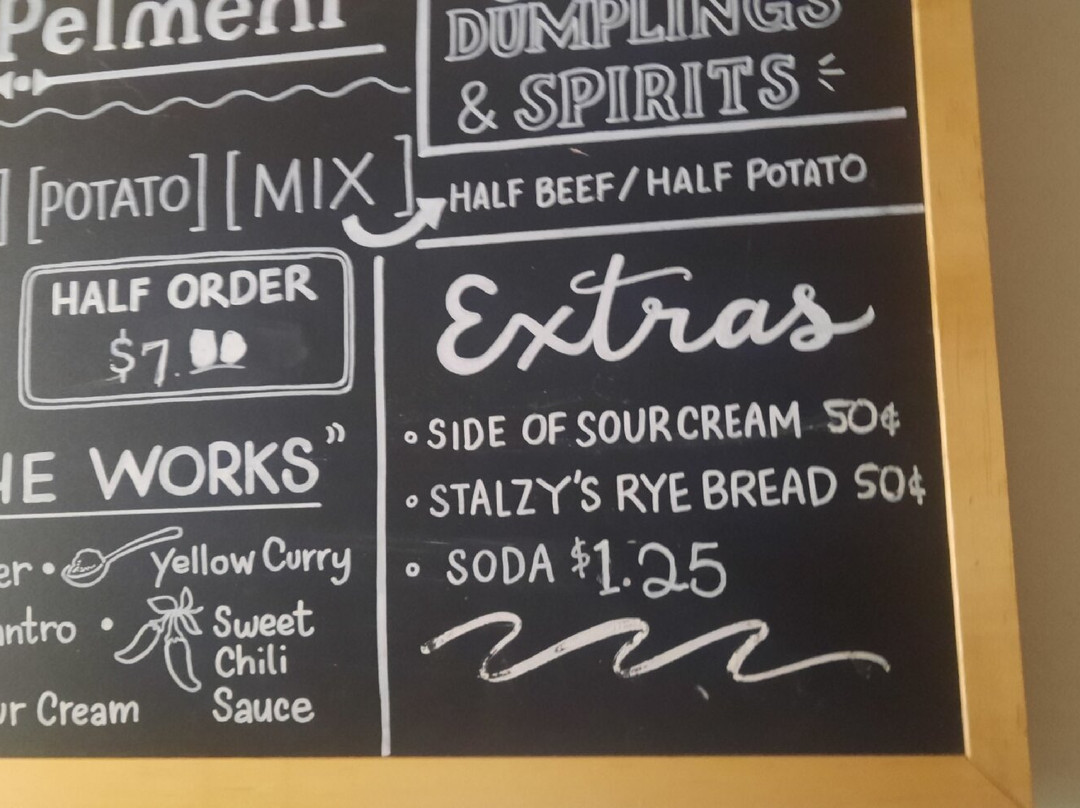 Pelmeni
DUMPLINGS
& SPIRITS
[POTATO] [MIX]
HALF BEEF/HALF POTATO
HALF ORDER
$7.00
Extras
• SIDE OF SOUR CREAM 50¢
• STALZY'S RYE BREAD 50¢
• SODA $1.25
WORKS"
• Yellow Curry
• Sweet
Chili
Sauce
Cream